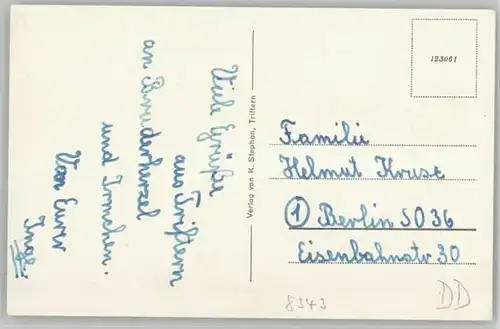 Viele Grüße
aus Triftern
an Bruderherzel
und Irmchen.
Von Eurer
Inge
Verlag von K. Stephan, Triftern
123061
Familie
Helmut Kruse
1 Berlin SO 36
Eisenbahnstr 30
8343
DD